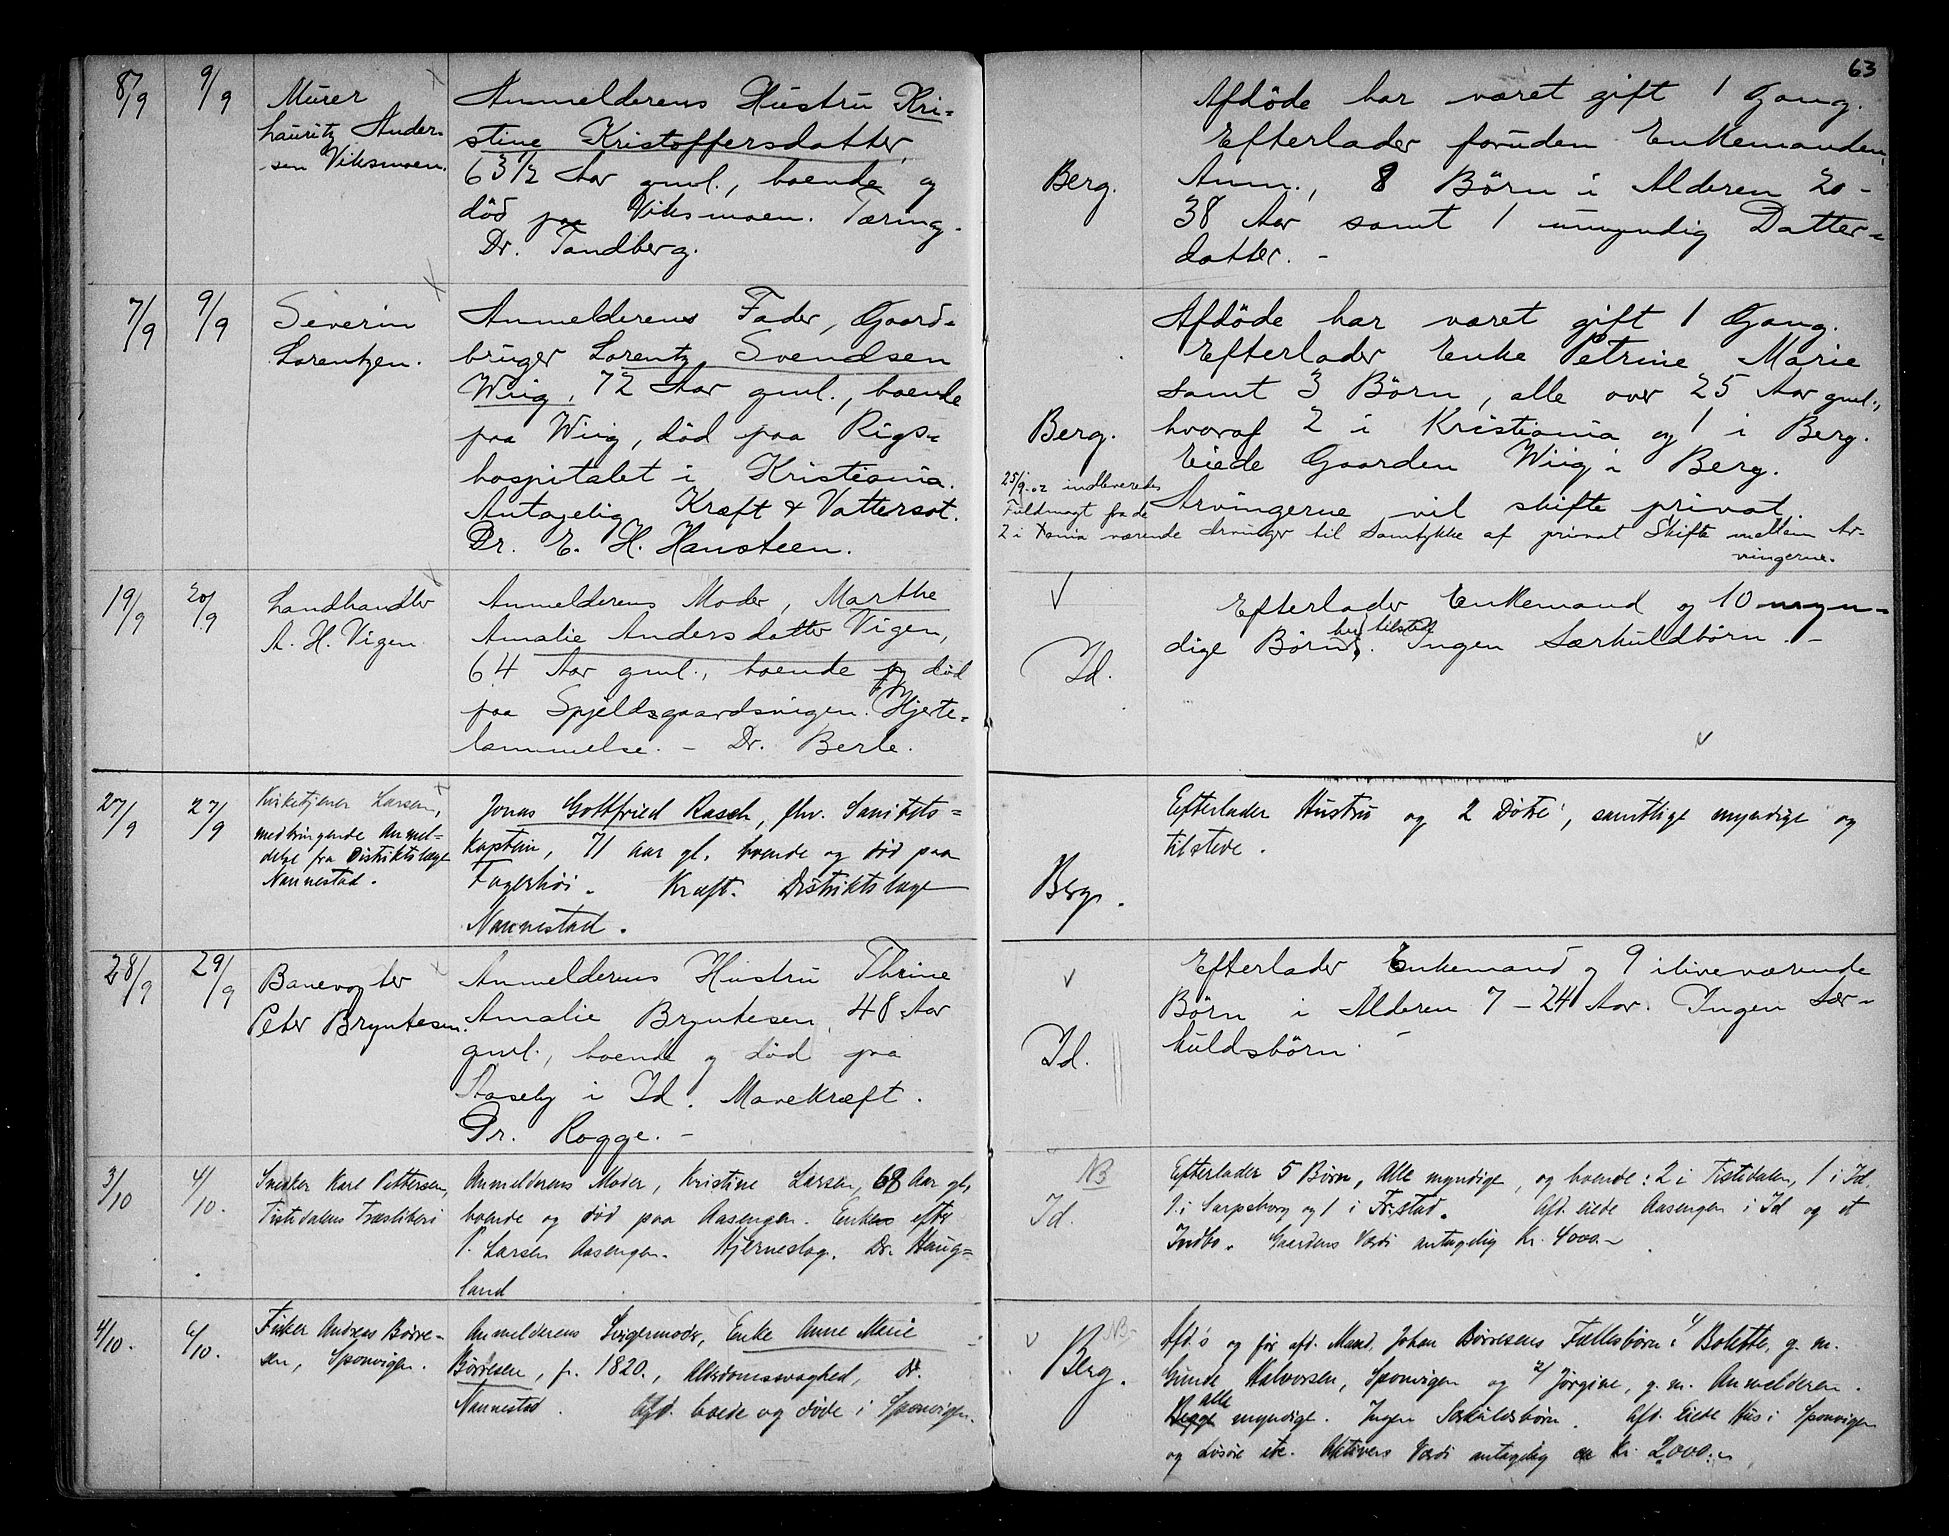 63
8/9
9/9
Murer
Lauritz Ander-
sen Viksmoen.
Anmelderens Hustru Kri-
stine Kristoffersdatter,
63 1/2 Aar gml., boende og
död paa Viksmoen. Tæring.
Dr. Tandberg.
Berg.
Afdöde har været gift 1 Gang.
Efterlader foruden Enkemanden,
Anm., 8 Börn i Alderen 20-
38 Aar samt 1 umyndig Datter-
datter. -
7/9
9/9
Severin
Lorentzen.
Anmelderens Fader, Gaard-
bruger Lorentz Svendsen
Wiig, 72 Aar gml., boende
paa Wiig, död paa Rigs-
hospitalet i Kristiania.
Antagelig Kræft & Vattersot.
Dr. E. H. Hansteen.
Berg.
Afdöde har været gift 1 Gang.
Efterlader Enke Petrine Marie
samt 3 Börn, alle over 25 Aar gml.,
hvoraf 2 i Kristiania og 1 i Berg.
Eiede Gaarden Wiig i Berg.
Arvingerne vil skifte privat.
25/9.02 indleveredes
Fuldmagt fra de
2 i Xania værende Arvinger til Samtykke af privat Skifte mellem Ar-
vingerne.
19/9
20/9
Landhandler
A. H. Vigen.
Anmelderens Moder, Marthe
Amalie Andersdatter Vigen,
64 Aar gml., boende og död
paa Spjeldsgaardsvigen. Hjerte-
lammelse. - Dr. Berle.
Id.
Efterlader Enkemand og 10 myn-
dige Börn, her tilsted. Ingen Særkuldbörn. -
27/9
27/9
Kirketjener Larsen,
medbringende Anmel-
delse fra Distriktslæge
Nannestad.
Jonas Gottfried Rasch, fhv. Sanitets-
kaptein, 71 aar gl. boende og död paa
Fagerhöi. Kræft. Distriktslæge
Nannestad.
Berg.
Efterlader Hustru og 2 Dötre, samtlige myndige og
tilstede.
28/9
29/9
Banevogter
Peter Bryntesen.
Anmelderens Hustru Thrine
Amalie Bryntesen, 48 Aar
gml., boende og död paa
Staseby i Id. Mavekræft.
Dr. Rogge. -
Id.
Efterlader Enkemand og 9 ilivevæerende
Börn i Alderen 7 - 24 Aar. Ingen Sær-
kuldsbörn. -
3/10
4/10.
Snekker Karl Pettersen,
Tistedalens Træsliberi
Anmelderens Moder, Kristine Larsen, 68 Aar gl.
boende og död paa Aasengen. Enke efter
P. Larsen Aasengen. Hjerneslag. Dr. Haug-
land
NB
Id.
Efterlader 5 Börn, Alle myndige, og boende: 2 i Tistedalen, 1 i Id.
1 i Sarpsborg og 1 i Fr.stad. Afd. eiede Aasengen i Id og et
Indbo. Gaardens Værdi antagelig Kr. 4000.-
4/10.
6/10.
Fisker Andreas Börre-
sen, Sponvigen.
Anmelderens Svigermoder, Enke Anne Marie
Börresen, f. 1820., Alderdomssvaghed, Dr.
Nannestad. Afd. boede og döde i Sponvigen.
NB
Berg.
Afd's og för afd. Mand, Johan Börresens Fællesbörn: 1/ Bolette, g. m.
Gunde Halvorsen, Sponvigen og 2/ Jörgine, g. m. Anmelderen.
alle
Begge myndige. Ingen Særkuldsbörn. Afd. Eiede Hus i Sponvigen
og Lösöre etc. Aktivers Værdi antagelig ca Kr. 2.000.-